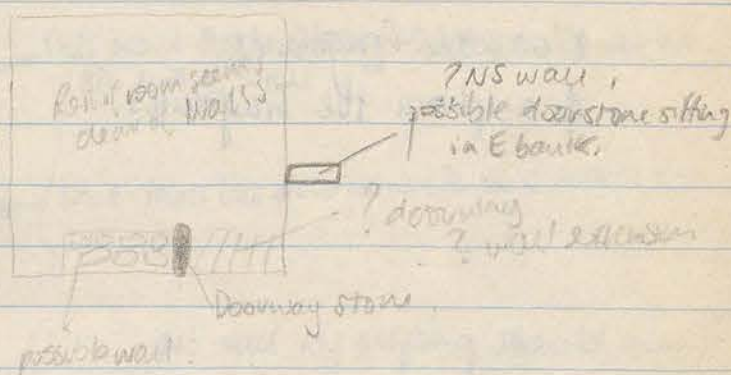 Rest of room seems
clear of walls
? NS wall,
possible doorstone sitting
in E baulk.
? doorway
? wall extension
Doorway stone.
possible wall.